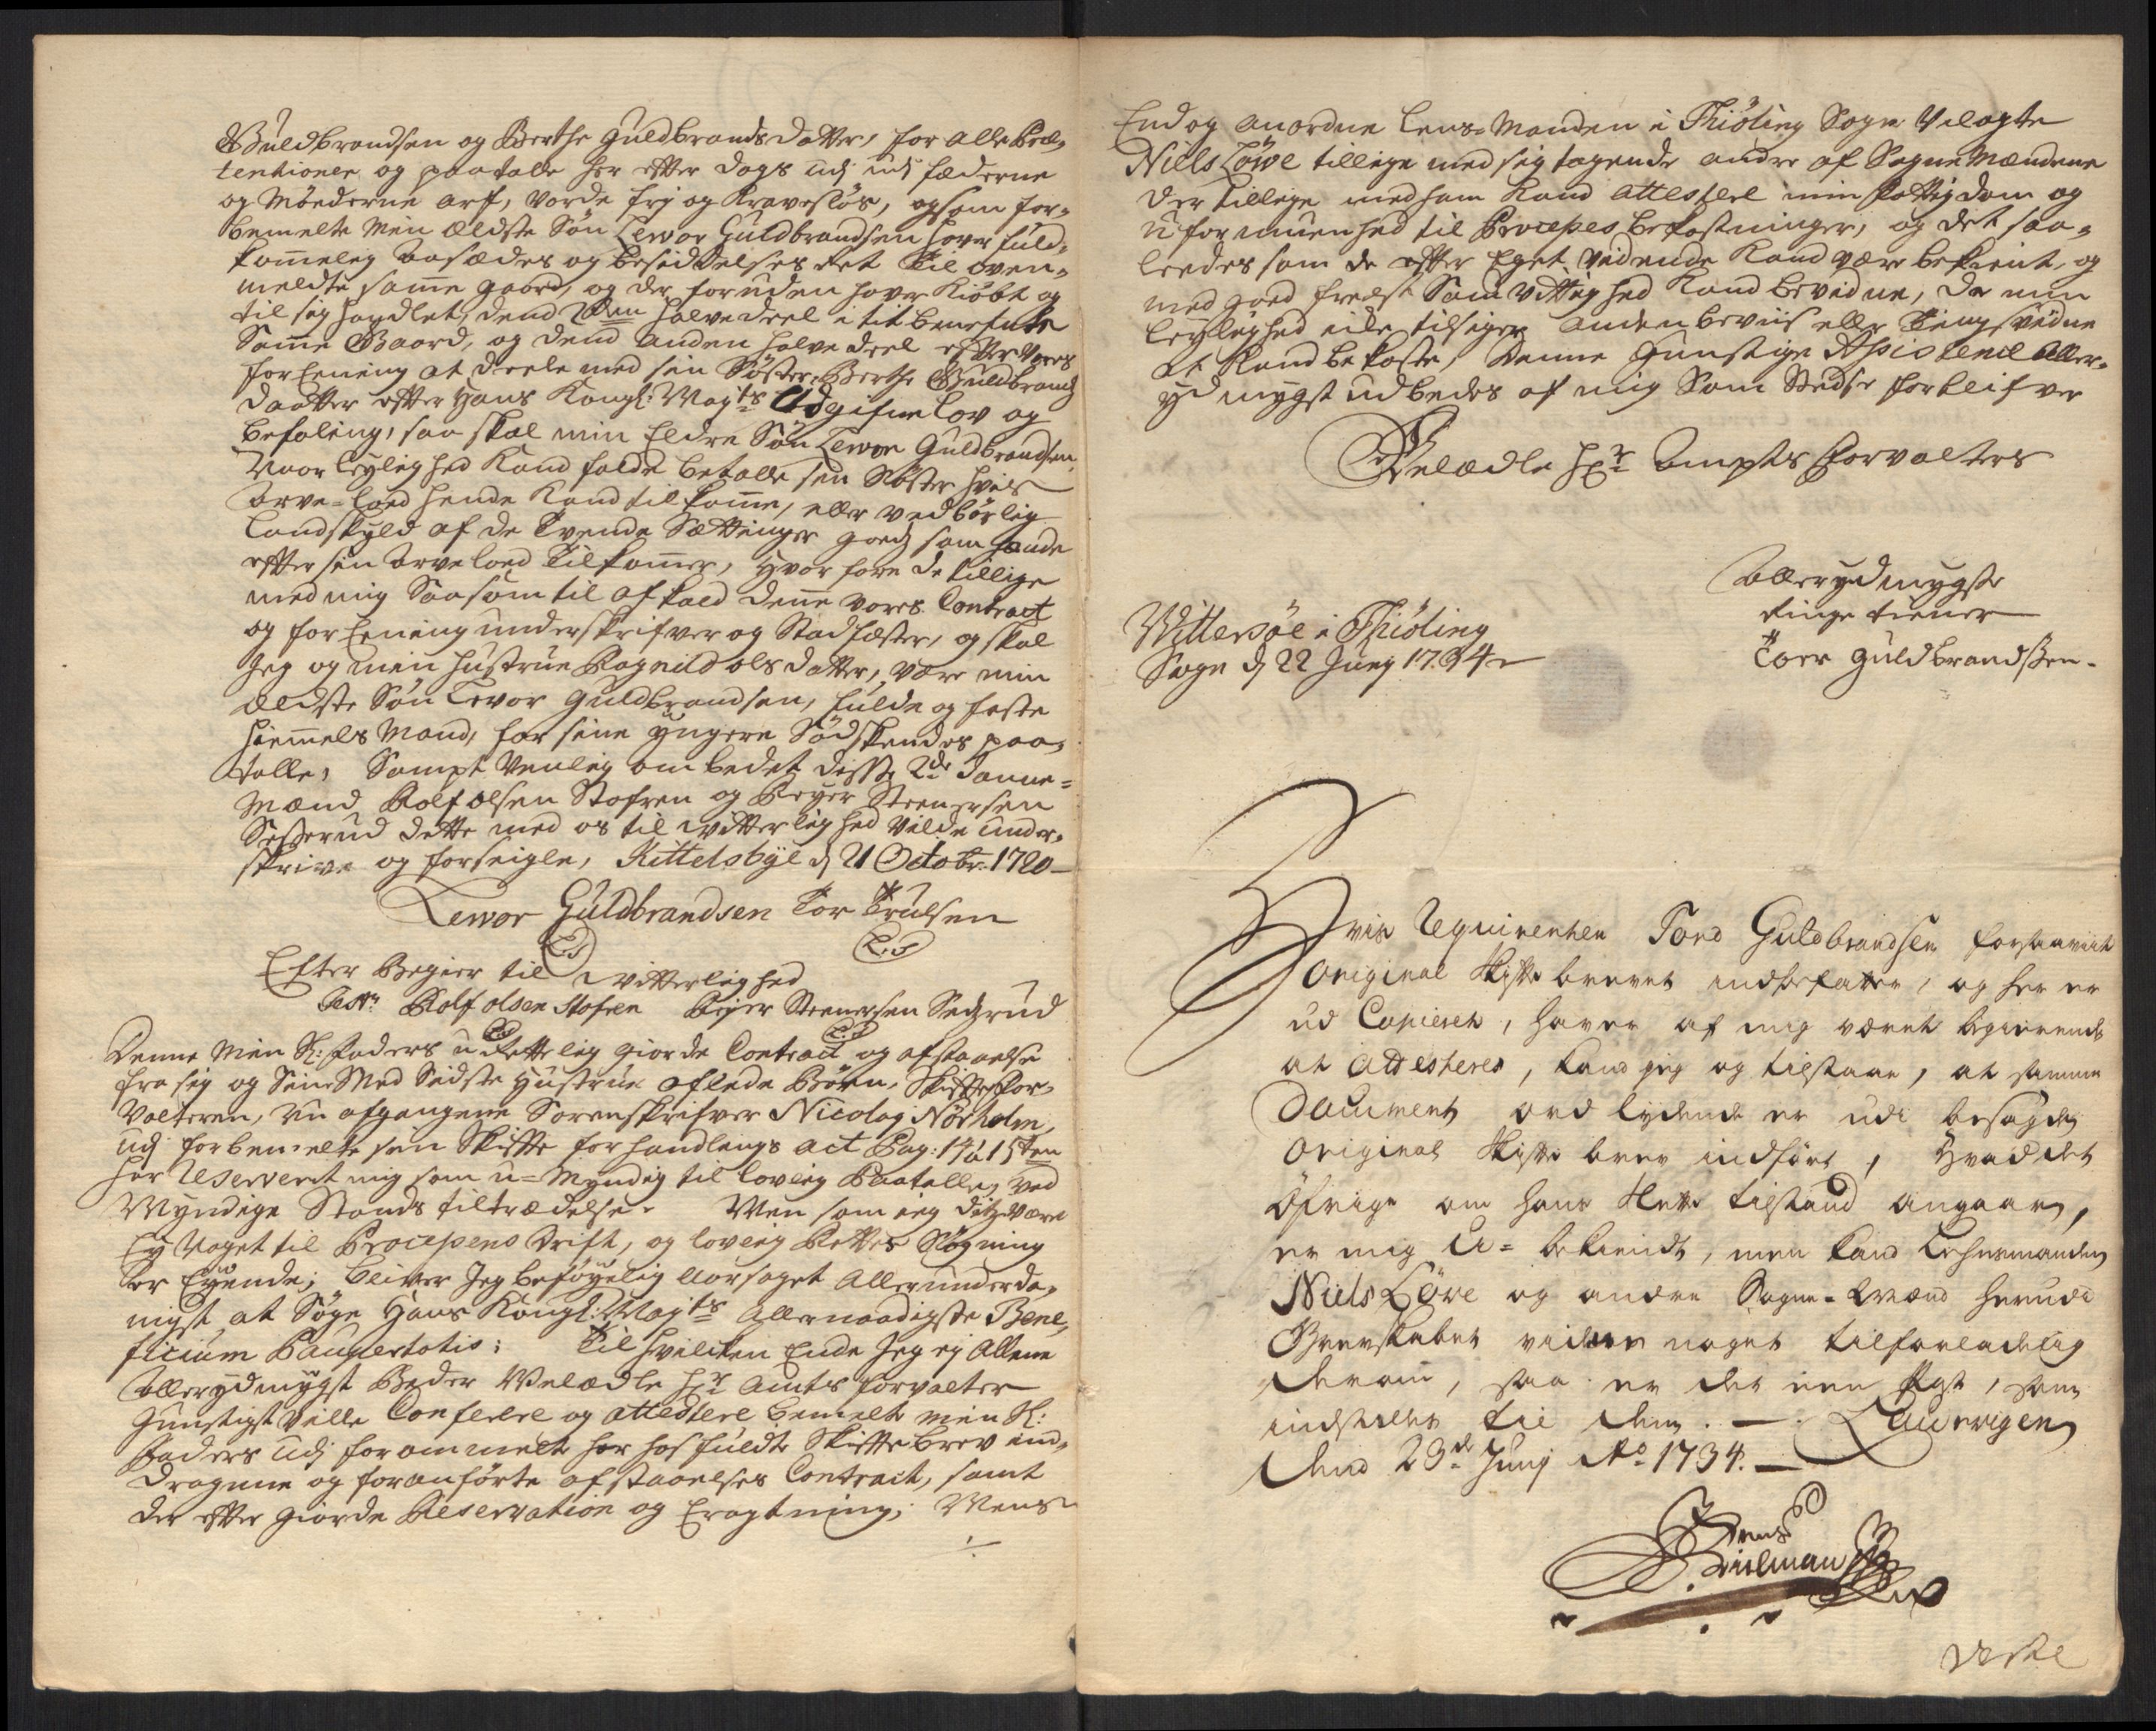 Guldbrandsen og Berthe Guldbrandsdatter, for alle Præ-
tentioner og paatalle her efter dags udj fæderne
og Möederne arf, vorde frj og Kravesløs, og som for-
bemelte Min Eldste Sön Lewor Guldbrandsen hawer fuld-
kommelig aasædes og besiddelses ret til oven-
meldte samme gaard, og der foruden hawer Kiöbt og
til sig handlet dend halvedeel i
Samme Gaard, og dend anden halve deel efter vores
foreening at deele med sin Söster Berthe Guldbrands
daatter efter Hans Kongl: Mayts Udgifne lov og
befaling, saa skal min Eldre Sön Lewor Guldbrandsen,
Naar leylighed Kand falde betalle sin Söster hvis
Arve-laad hende Kand tilkomme, eller ved börlig
landskyld af de tvende Sættinger goeds som hende
efter sin arvelaad tilkommer, hvorfore de tillige
med mig Saasom til afkald denne vores Contract
og foreening underskrifver og Stadfæster, og skal
Jeg og min hustrue Ragnild olsdatter, være min
Eldste Sön Lewor Guldbrandsen, fulde og faste
hiemmels Mand, for sine yngere Södskendes paa-
talle, Sampt venlig ombedet disse 2de Danne-
Mænd Rolf olsen Stofren og Reyer Steenersen
Seserud dette med os til witterlighed vilde under-
skrive og forseigle, Kittelsbye d 21 Octobr: 1720
Lewor Guldbrandsen Tor Trulsen
L:S L:S
Efter Begier til Witterlighed
Rolf olsen Stofren Reyer Steenersen Sedsrud
L:S L:S
Denne Min Sl: Faders u-Rettelig giorde Contract og afstaaelse
fra sig og Sine Med Sidste Hustrue aflede Börn, Skifte for-
valteren, nu afgangene Sorenskrifver Nicolay Nörholm,
udj forbemelte sin Skifte forhandlings act Pag: 14 à 15ten
har Reserveret mig som u-Myndig til lovlig Paatalle, ved
Myndige Stands tiltrædelse. Men som ieg desværre
Ey Noget til Processens Drift, og lovlig Rettes Søgning
er Eyende; bliver Jeg beföyelig Aarsaget Allerunderda-
nigst at Söge Hans Kongl: Mayts Allernaadigste Bene-
ficium Paupertatis: Til hvilcken Ende Jeg ej Allene
Allerydmygst Beder Welædle Hr Amts forvalter
Gunstigst ville Conferere og attestere bemelte min Sl:
Faders udj forommelte her hos fuldte Skiftebrev ind-
dragne og foranförte afstaaelses Contract, samt
der efter giorde Reservation og Eragtning; Mens
End og anordne Lens-Manden i Thiöling Sogn Velagte
Niels Löwe tillige med sig tagende andre af Sogne Mændene
der tillige med ham Kand attestere min Fattigdom og
uformuenhed til Processes bekostninger, og det saa-
leedes som de efter Eget vidende Kand være bekient, og
med goed frelst Samvittighed Kand bevidne, da min
leylighed ei tilsiger anden beviis eller Tingsvidne
at Kand bekoste, Denne Gunstige Assistence Aller-
ydmygst udbedes af mig Som Stedse forblifver
Welædle Hr Ampts Forvalters
Allerydmygste
ringe tiener
Toer Guldbrandssen.
Wittersöe i Thiöling
Sogn d 22 Junj 1734
Hvis Reqvirenten Tord Guldbrandsen forhaanviist
Original Skiftebrevet indbefatter, og her er
ud Copieret, haver af mig været begierende
at attesteres, Kand jeg og tilstaae, at samme
Document ord lydende er udi besagde
Original Skifte brev indfört, Hvad det
öfrige om hans slette tilstand angaar,
er mig U-bekiendt, men Kand Lehnsmanden
Niels Löve og andre Sogne-Mænd herudi
Grevskabet vidne noget tilforladelig
derom, saa er det een Sag, som
indstilles til dem. — Laurvigen
dend 23de Junj Ao 1734.
Vske